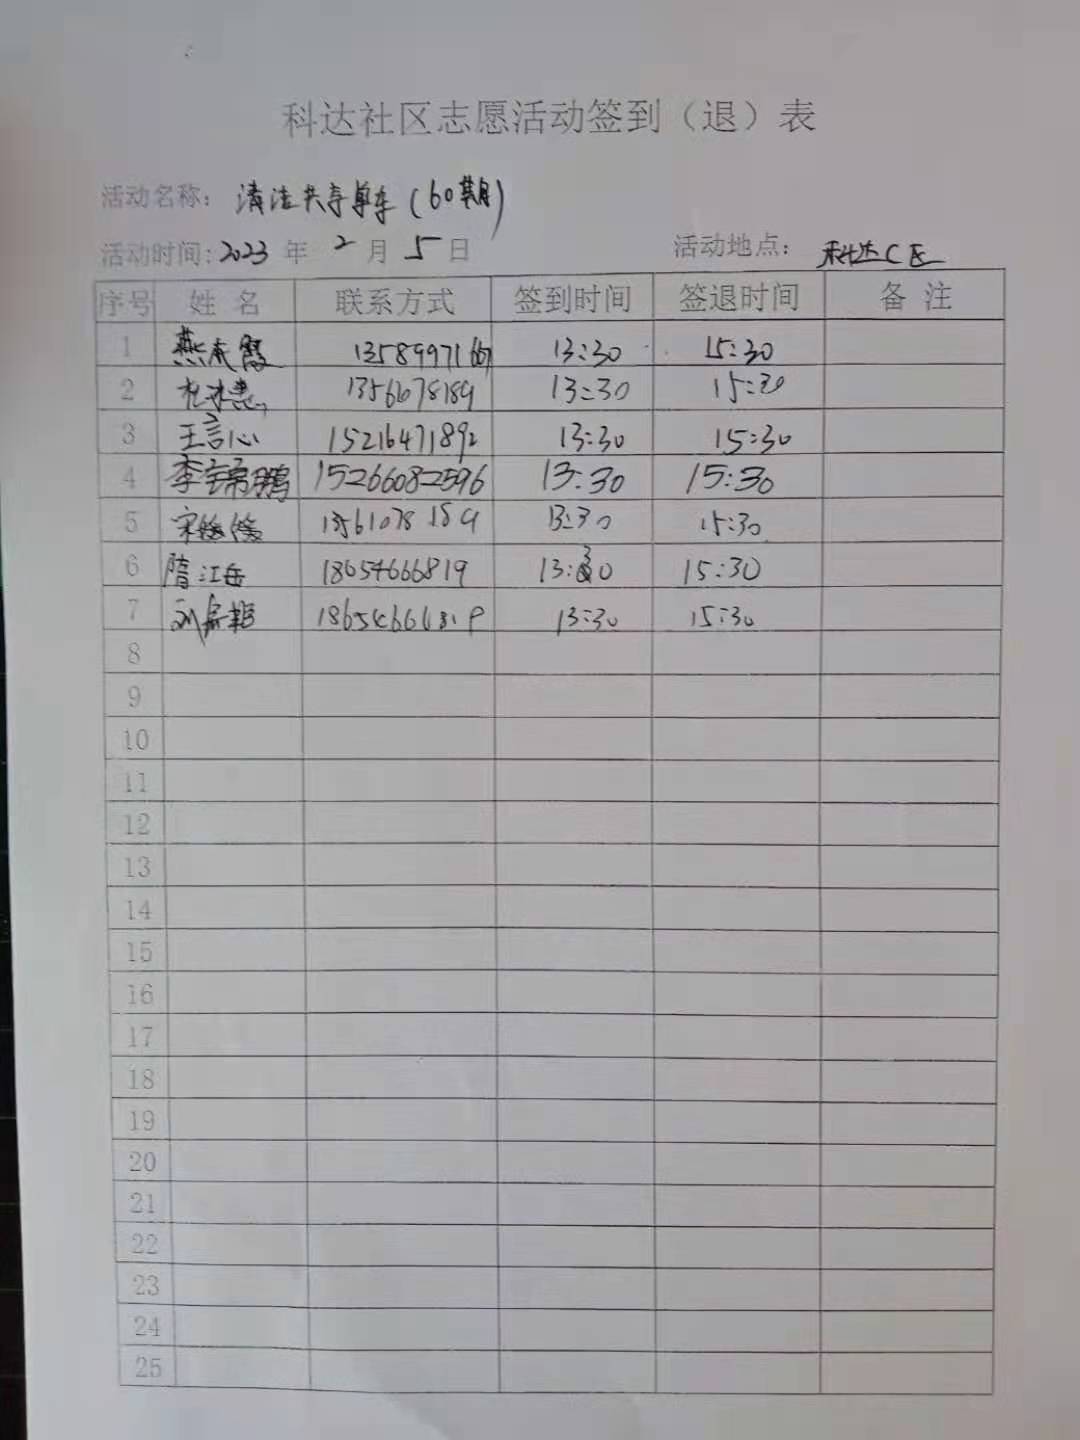 科达社区志愿活动签到（退）表
活动名称：清洁共享单车（60期）
活动时间：2023 年 2 月 5 日 活动地点：科达C区
序号 姓 名 联系方式 签到时间 签退时间 备 注
1 燕 霞 13:30 15:30
2 13561078189 13:30 15:30
3 王言心 15216471892 13:30 15:30
4 李 鹏 15266082596 13:30 15:30
5 宋 13561078189 13:30 15:30
6 隋江岳 18654666819 13:30 15:30
7 刘 13:30 15:30
8
9
10
11
12
13
14
15
16
17
18
19
20
21
22
23
24
25